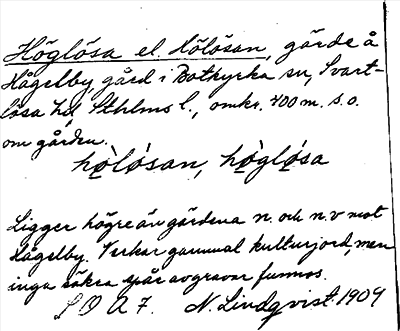 Höglösa el. Hölösan, gärde å
Hågelby, gård i Botkyrka sn, Svart-
lösa hd, Sthlms l., omkr. 400 m. s.o.
om gården.
hö̀lósan, hö̀glósa
Ligger högre än gärdena n. och n.v mot
Hågelby. Verkar gammal kulturjord, men
inga säkra spår av gravar funnos.
S O A 7. N. Lindqvist. 1909